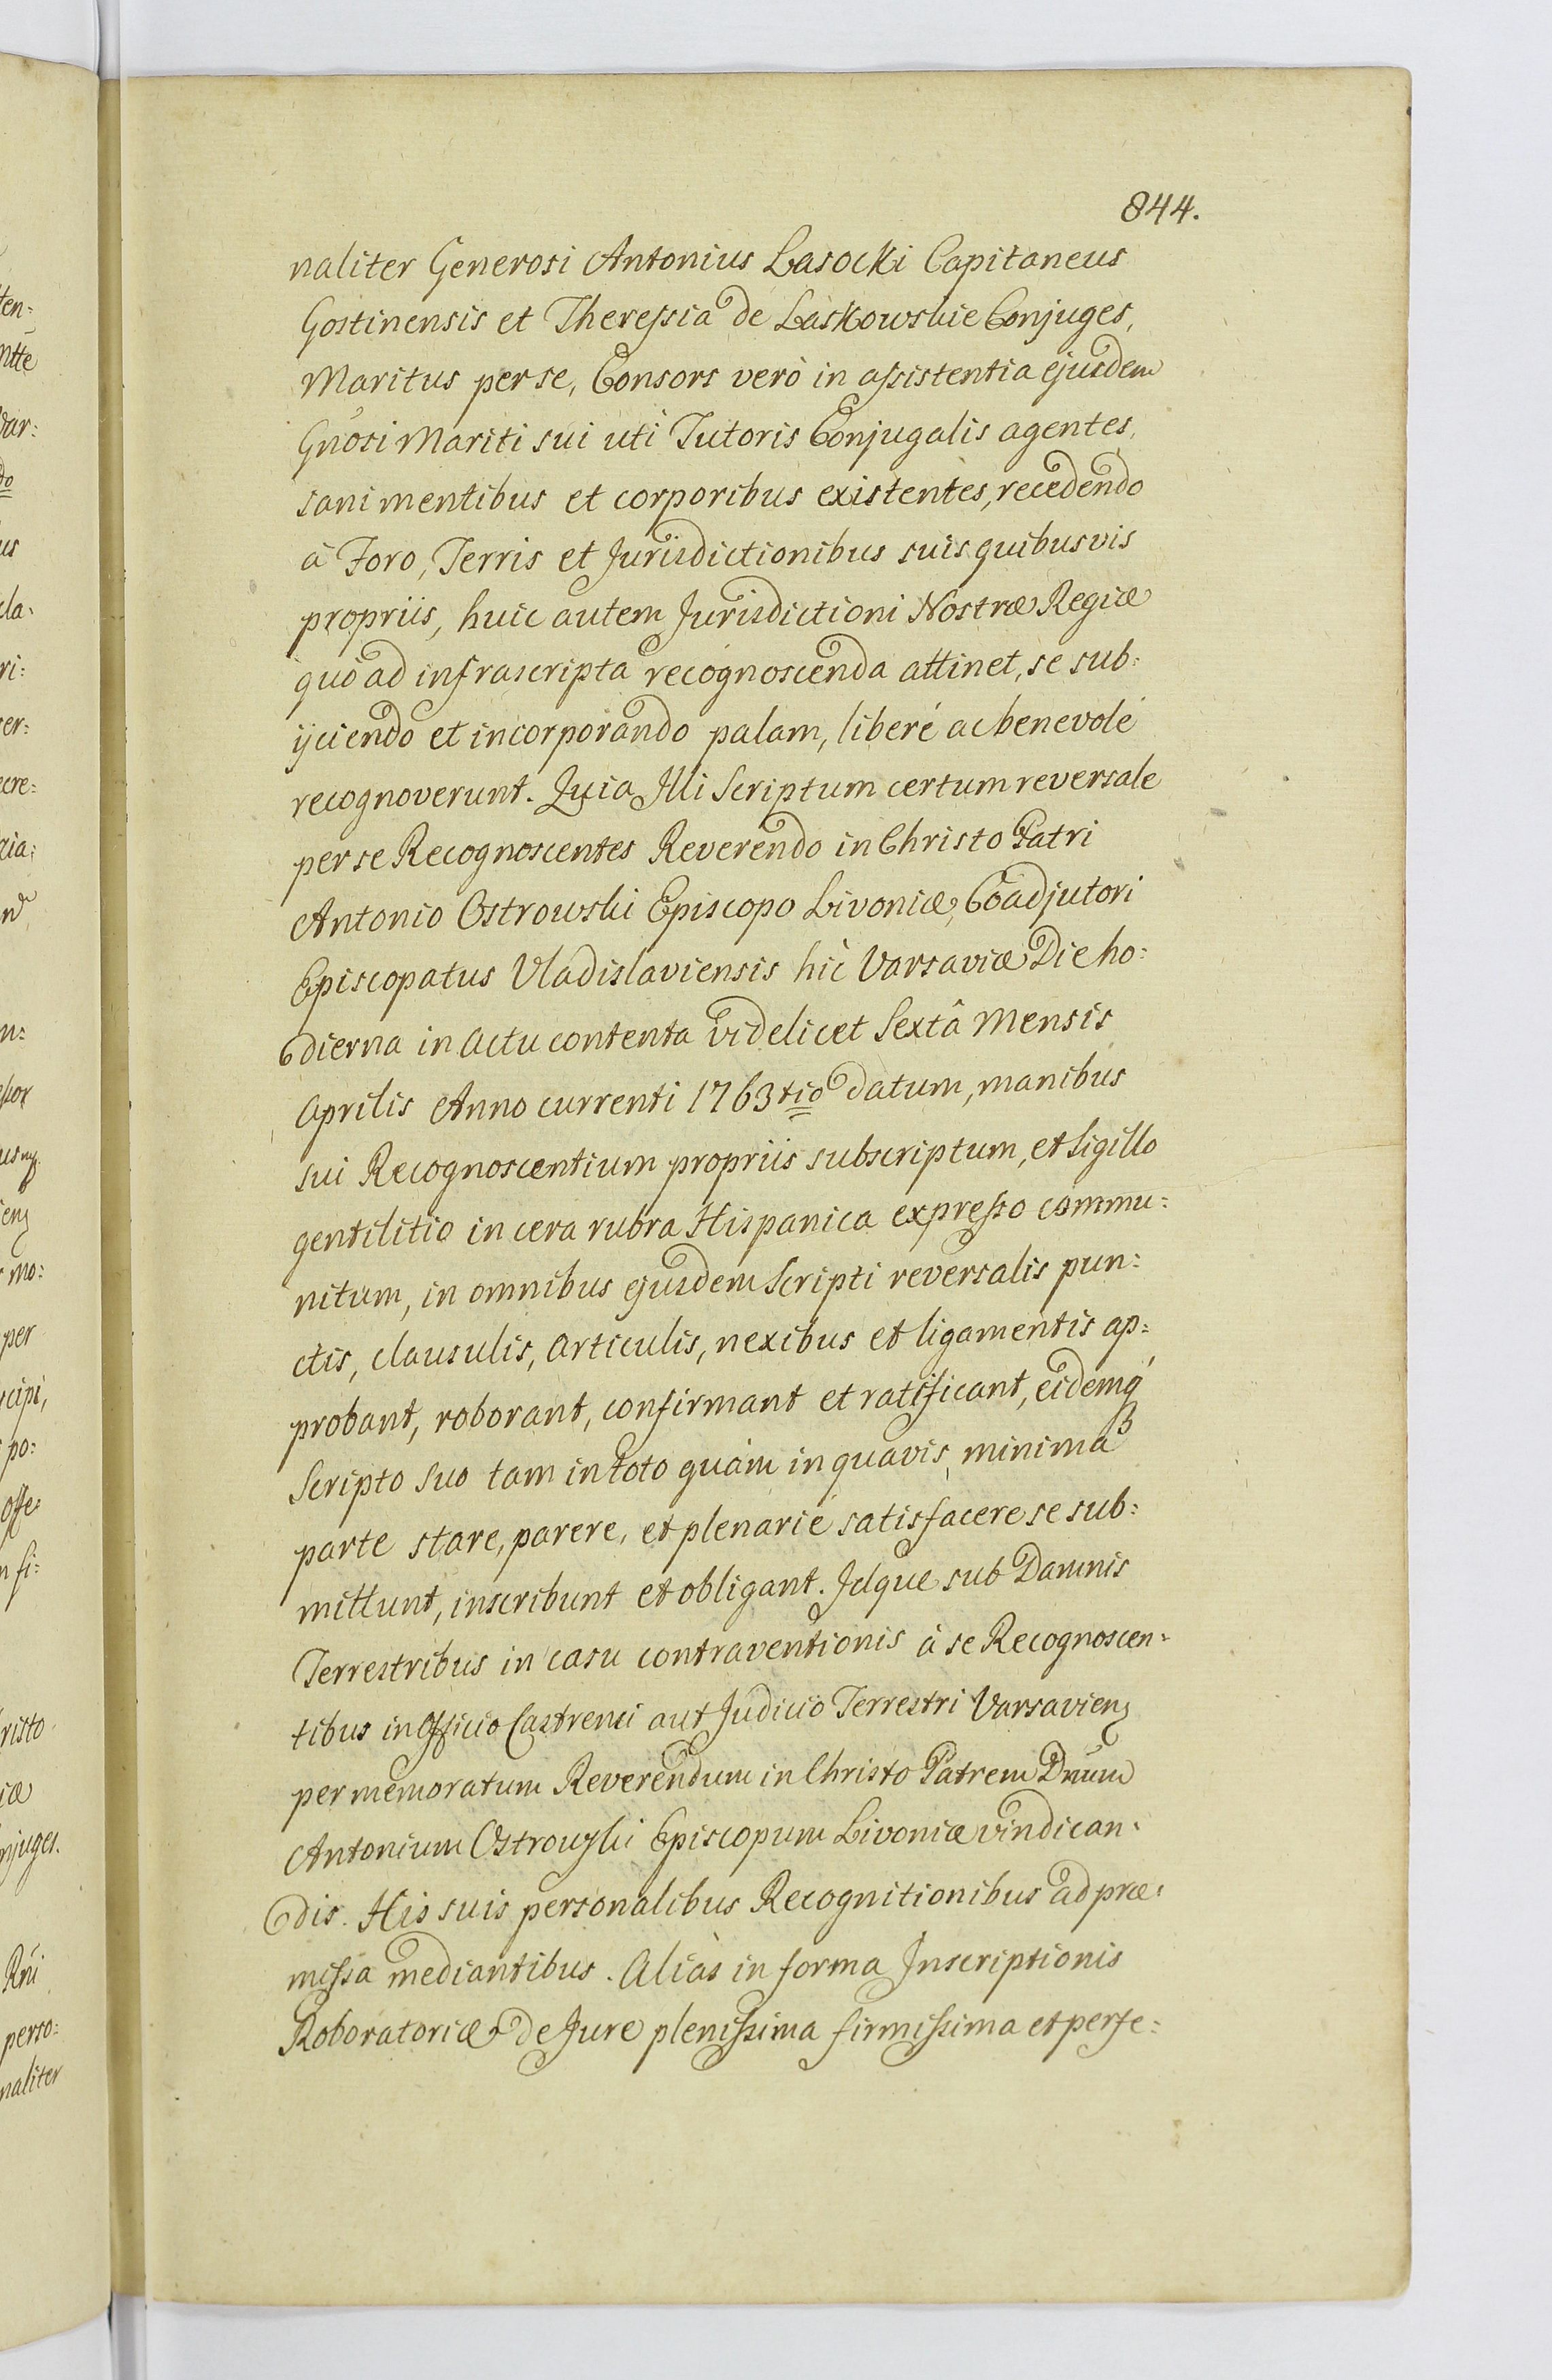 844.
naliter Generosi Antonius Lasocki Capitaneus
Gostinensis et Theressia de Laskowskie Conjuges,
Maritus per se, Consors verò in assistentia ejusdem
Gnosi Mariti sui uti Tutoris Conjugalis agentes,
sani mentibus et corporibus existentes, recedendo
à Foro, Terris et Jurisdictionibus suis quibusvis
propriis, huic autem Jurisdictioni Nostræ Regiæ
quò ad infrascripta recognoscenda attinet, se sub:
ijciendo et incorporando palam, liberé ac benevolé
recognoverunt. Quia Illi Scriptum certum reversale
per se Recognoscentes Reverendo in Christo Patri
Antonio Ostrowski Episcopo Livoniæ, Coadjutori
Episcopatus Vladislaviensis hìc Varsaviæ Die ho:
dierna in Actu contenta videlicet Sextâ Mensis
Aprilis Anno currenti 1763tio datum, manibus
sui Recognoscentium propriis subscriptum, et Sigillo
gentilitio in cera rubra Hispanica expresso commu:
nitum, in omnibus ejusdem Scripti reversalis pun:
ctis, clausulis, articulis, nexibus et ligamentis ap:
probant, roborant, confirmant et ratificant, eidemq́
Scripto Suo tam in toto quàm in quavis, minima
parte stare, parere, et plenarié satisfacere se sub:
mittunt, inscribunt et obligant. Idque sub Damnis
Terrestribus in casu contraventionis à se Recognoscen:
tibus in Officio Castrensi aut Judicio Terrestri Varsavien
per memoratum Reverendum in Christo Patrem Dnum
Antonium Ostrowski Episcopum Livoniæ vindican:
dis. His suis personalibus Recognitionibus ad præ:
missa mediantibus. Aliàs in forma Inscriptionis
Roboratoriæ de Jure plenissima firmissima et perfe: